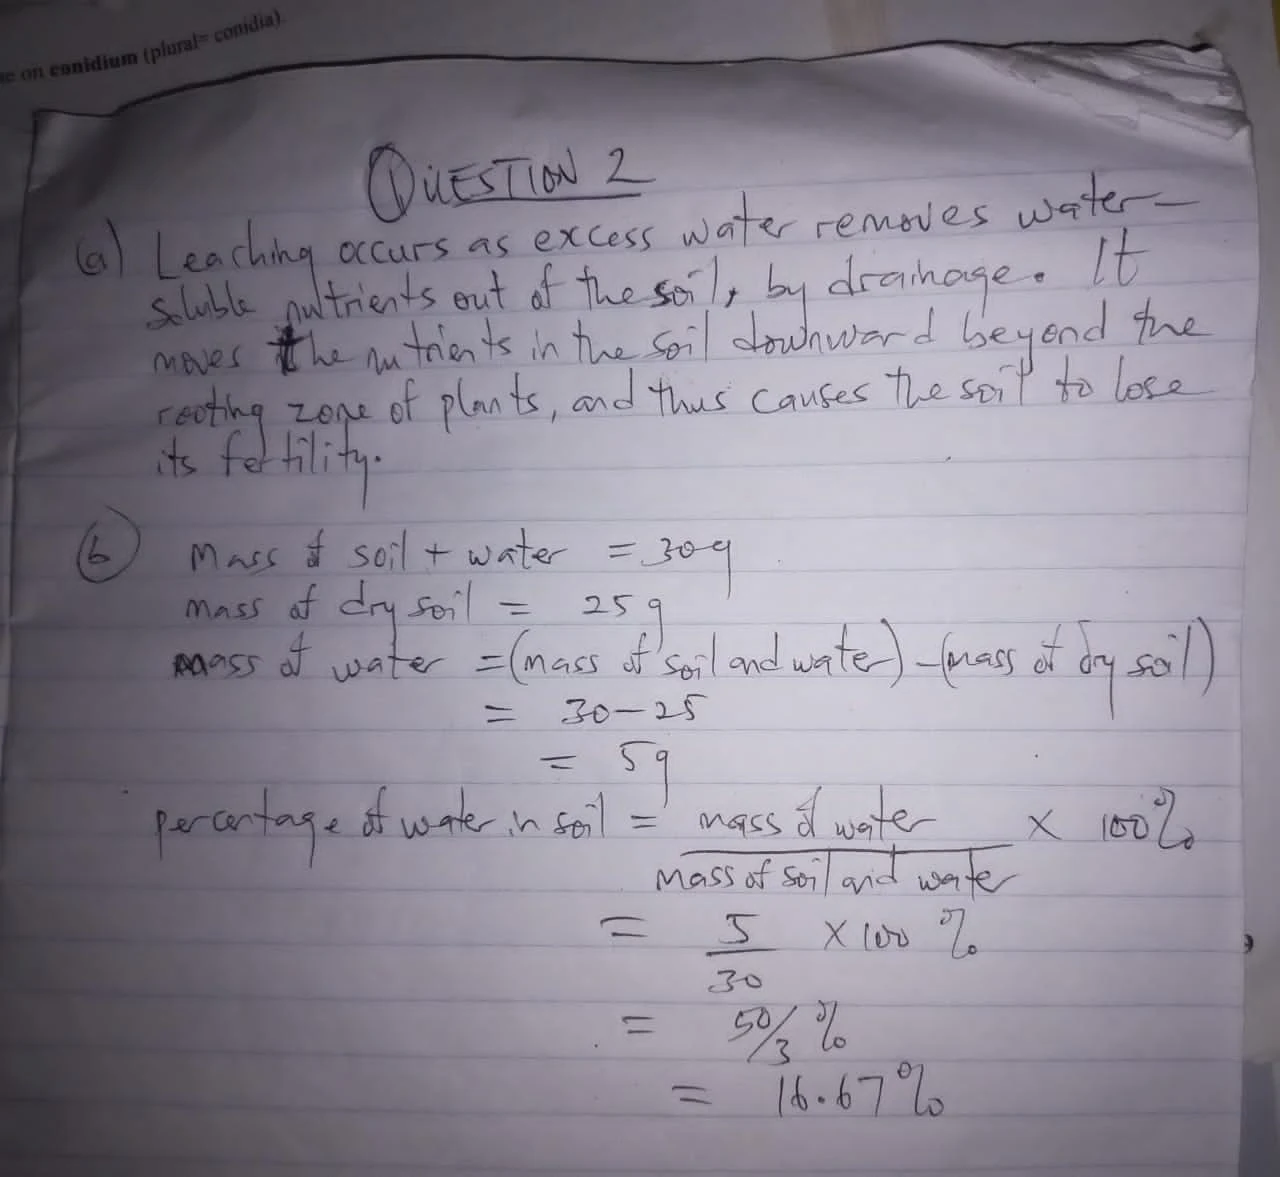 e on conidium (plural= conidia).
QUESTION 2
(a) Leaching occurs as excess water removes water-
soluble nutrients out of the soil, by drainage. It
moves the nutrients in the soil downward beyond the
rooting zone of plants, and thus causes the soil to lose
its fertility.
(b) Mass of soil + water = 30g
mass of dry soil = 25g
mass of water = (mass of soil and water) - (mass of dry soil)
= 30-25
= 5g
percentage of water in soil = mass of water × 100%
Mass of soil and water
= 5 × 100%
30
= 50/3 %
= 16.67%